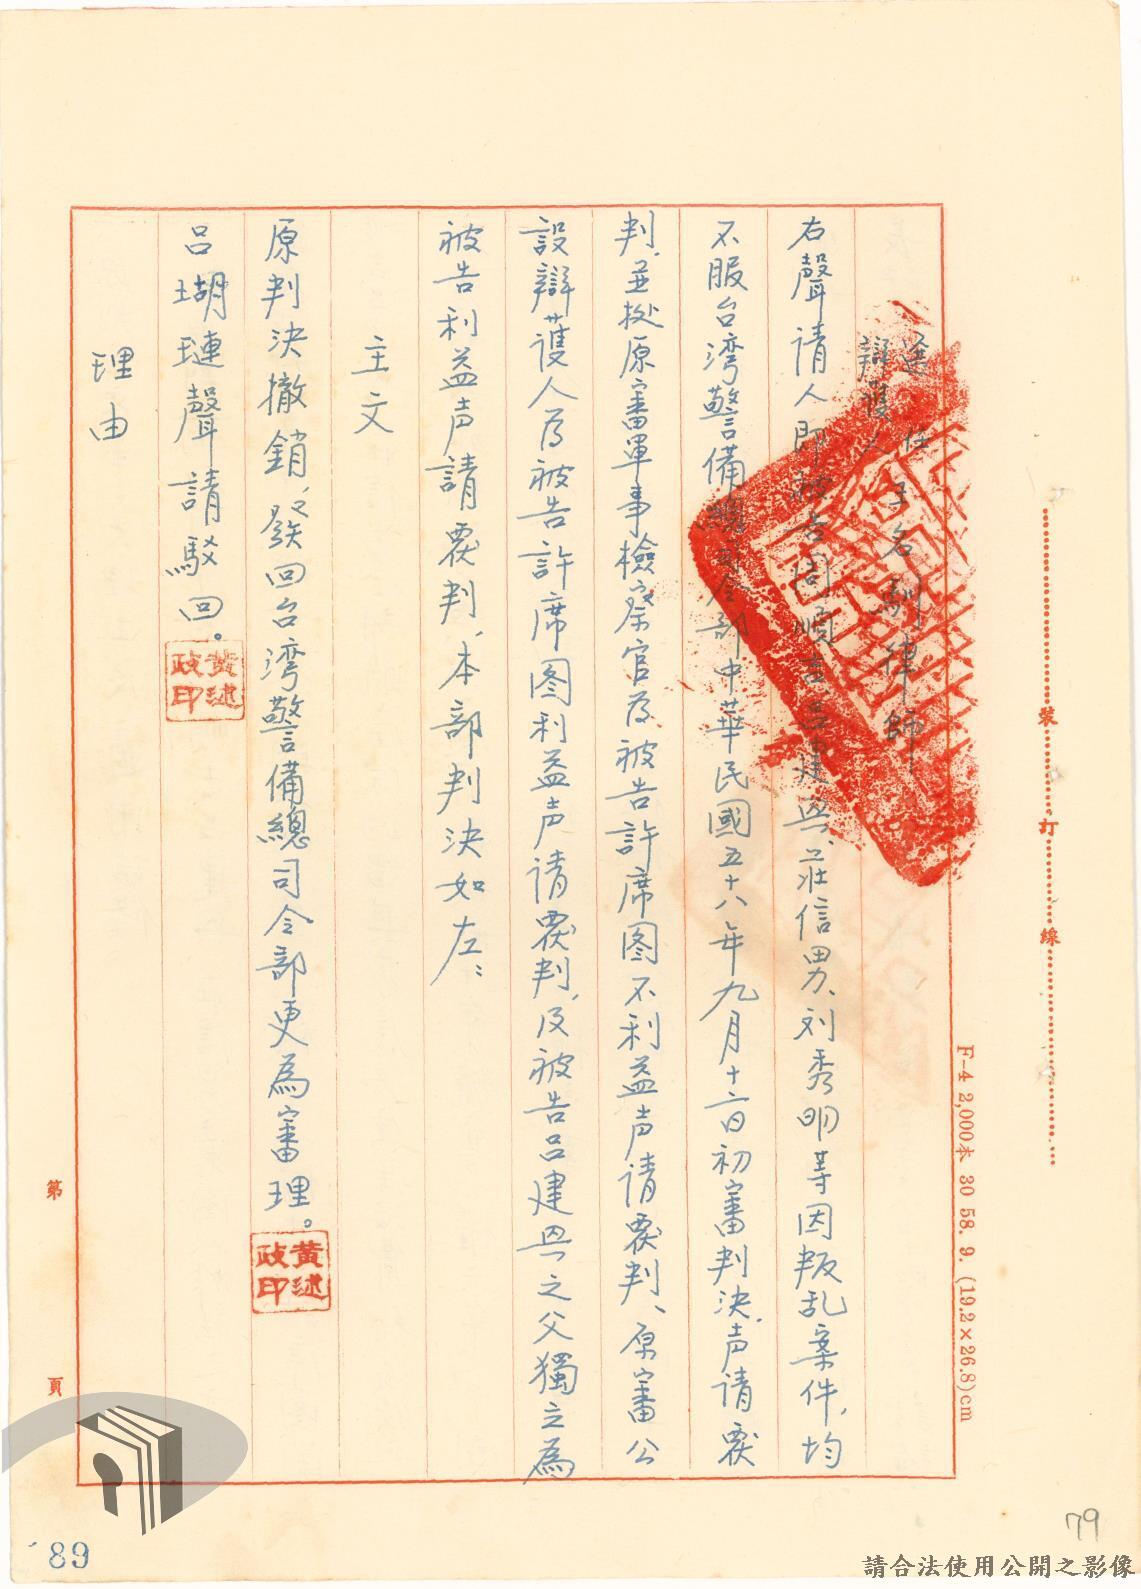 選任
辯護人
王名馴律師
右聲請人即被告周順吉呂建興、莊信男、刘秀明等因叛乱案件，均
不服台湾警備總司令部中華民國五十八年九月十二日初審判決，声请覆
判，並挍原審軍事檢察官為被告許席图不利益声请覆判、原審公
設辯護人為被告許席图利益声请覆判，及被告呂建興之父獨立為
被告利益声請覆判，本部判決如左：
主文
原判決撤銷，發回台湾警備總司令部更為審理。
黃述政印
呂瑚璉聲請駁回。
黃述政印
理由
裝 訂 線
F-4 2,000本 30 58. 9. (19.2×26.8)cm
第 頁
89
79
請合法使用公開之影像